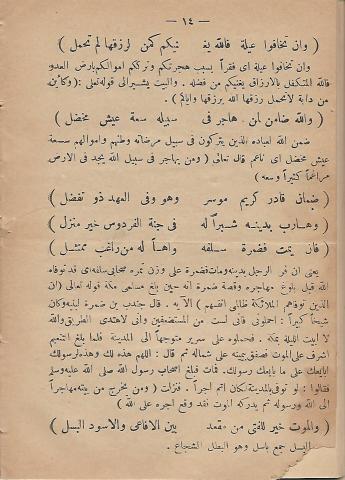 — ١٤ —
( وان تخافوا عيلة فالله يغـ ـنيكم كمن لرزقها لم تحمل )
وان تخافوا عيلة اى فقراً بسبب هجرتكم وترككم اموالكم بارض العدو
فالله المتكفل بالارزاق يغنيكم من فضله . والبيت يشير الى قوله تعالى : ( وكأين
من دابة لا تحمل رزقها الله يرزقها واياكم ) .
( والله ضامن لمن هاجر فى سبيله سعة عيش مخضل )
ضمن الله لعباده الذين يتركون فى سبيل مرضاته وطنهم واموالهم سعة
عيش مخضل اى ناعم قال تعالى ( ومن يهاجر فى سبيل الله يجد فى الارض
مراغماً كثيراً وسعه )
( ضمان قادر كريم موسر وهو وفى العهد ذو تفضل )
( وهارب بدينه شبراً له فى جنة الفردوس خير منزل )
( فان يمت فضمرة سلفه واهاً له من راغب ممتثل )
يعنى ان فر الرجل بدينه ومات فضمرة على وزن تمره صحابى سلفه اى قد توفاه
الله قبل بلوغ مهاجره وقصة ضمرة انه حين بلغ مسلمى مكة قوله تعالى ( ان
الذين توفاهم الملائكة ظالمى انفسهم ) الآيه . قال جندب بن ضمرة لبنيه وكان
شيخاً كبيراً : احملونى فانى لست من المستضعفين وانى لاهتدى الطريق والله
لا ابيت الليلة بمكة . فحملوه على سرير متوجهاً الى المدينة فلما بلغ التنعيم
اشرف على الموت فصفق بيمينه على شماله ثم قال : اللهم هذه لك وهذه لرسولك
ابايعك على ما بايعك رسولك . فمات فبلغ اصحاب رسول الله صلى الله عليه وسلم
فقالوا : لو توفى بالمدينة لكان اتم اجراً . فنزلت ( ومن يخرج من بيته مهاجراً
الى الله ورسوله ثم يدركه الموت فقد وقع اجره على الله )
( والموت خير للفتى من مقعد بين الافاعى والاسود البسل )
البسل جمع باسل وهو البطل الشجاع .